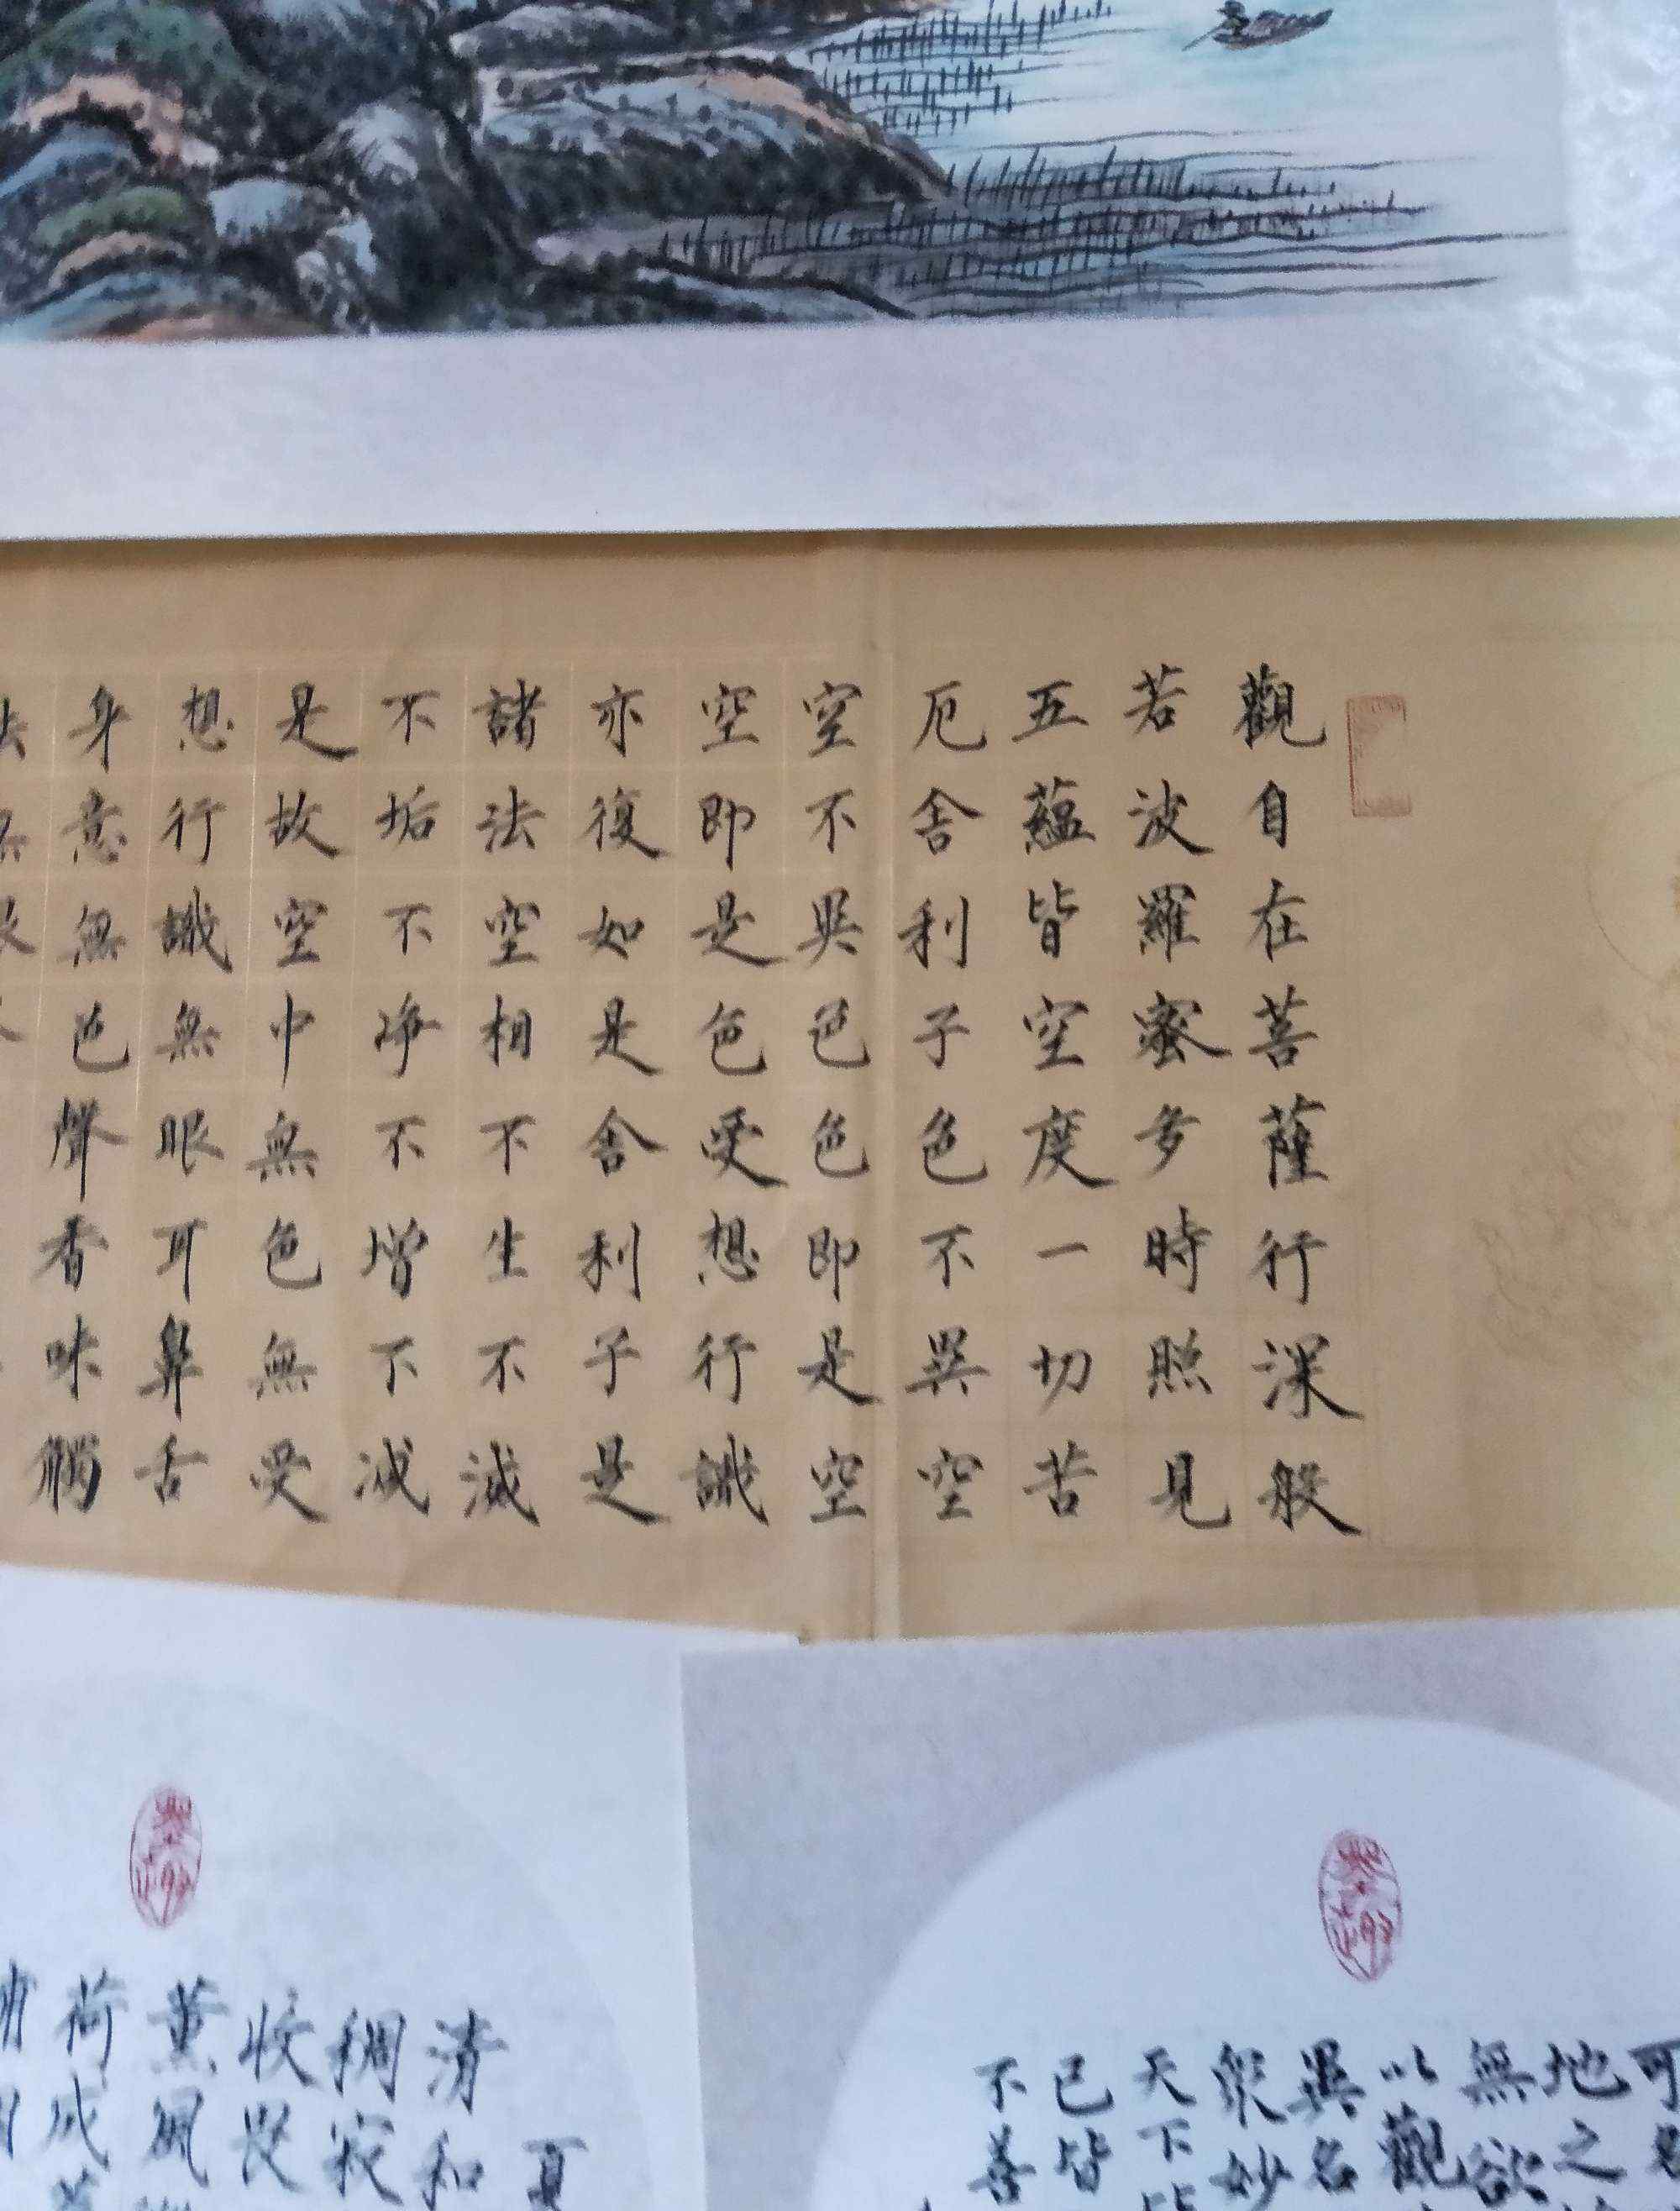 觀自在菩薩行深般
若波羅蜜多時照見
五蘊皆空度一切苦
厄舍利子色不異空
空不異色色即是空
空即是色受想行識
亦復如是舍利子是
諸法空相不生不滅
不垢不淨不增不減
是故空中無色無受
想行識無眼耳鼻舌
身意無色聲香味觸
夏
清和
稠寂
收
薰風
荷成
可名
地之
無欲
以觀
異名
衆妙
天下皆
已皆
不善